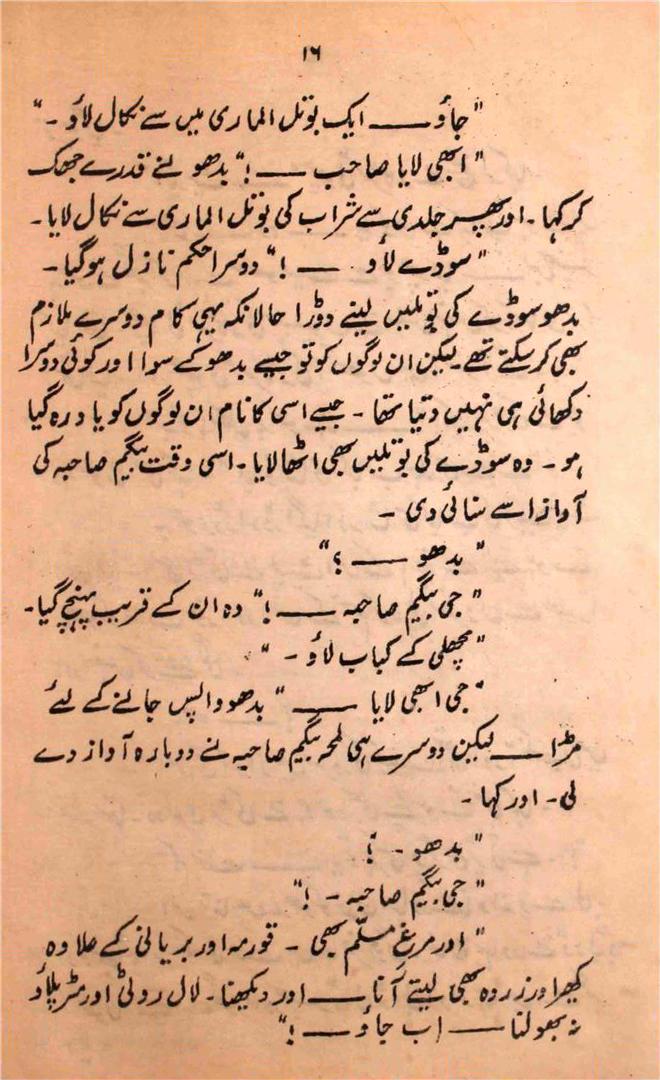 ۱۶
"جاؤ —— ایک بوتل الماری میں سے نکال لاؤ ۔"
"ابھی لایا صاحب —— !" بدھو نے قدرے جھک
کر کہا ۔ اور پھر جلدی سے شراب کی بوتل الماری سے نکال لایا ۔
"سوڈے لاؤ —— !" دوسرا حکم نازل ہوگیا ۔
بدھو سوڈے کی بوتلیں لینے دوڑا حالانکہ یہی کام دوسرے ملازم
بھی کر سکتے تھے ۔ لیکن ان لوگوں کو تو جیسے بدھو کے سوا اور کوئی دوسرا
دکھائی ہی نہیں دیتا تھا ۔ جیسے اسی کا نام ان لوگوں کو یاد رہ گیا
ہو ۔ وہ سوڈے کی بوتلیں بھی اٹھا لایا ۔ اسی وقت بیگم صاحبہ کی
آواز اسے سنائی دی ۔
"بدھو —— ؟"
"جی بیگم صاحبہ —— !" وہ ان کے قریب پہنچ گیا ۔
"مچھلی کے کباب لاؤ ۔"
"جی ابھی لایا —— " بدھو واپس جانے کے لئے
مڑا —— لیکن دوسرے ہی لمحہ بیگم صاحبہ نے دوبارہ آواز دے
لی ۔ اور کہا ۔
"بدھو ۔ ؟
"جی بیگم صاحبہ ۔ !"
"اور مرغِ مسلّم بھی ۔ قورمہ اور بریانی کے علاوہ
کھیر اور زردہ بھی لیتے آنا —— اور دیکھنا ۔ لال روٹی اور مٹر پلاؤ
نہ بھولنا —— اب جاؤ —— !"